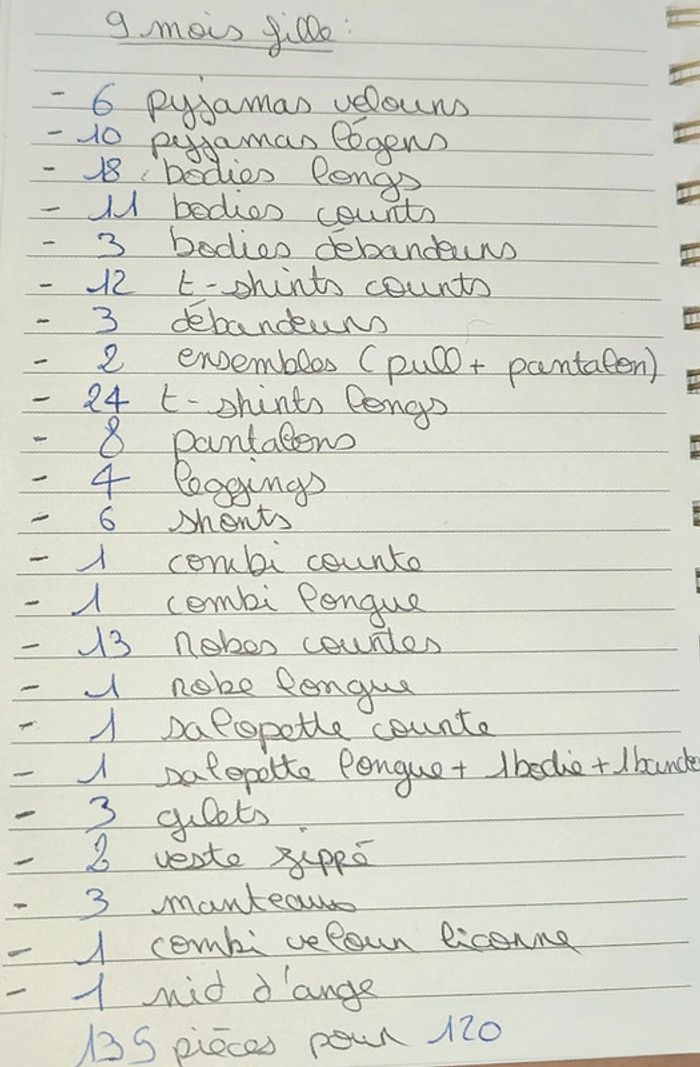 9 mois fille :
- 6 pyjamas velours
- 10 pyjamas légers
- 18 bodies longs
- 11 bodies courts
- 3 bodies débardeurs
- 12 t-shirts courts
- 3 débardeurs
- 2 ensembles (pull + pantalon)
- 24 t-shirts longs
- 8 pantalons
- 4 leggings
- 6 shorts
- 1 combi courte
- 1 combi longue
- 13 Robes courtes
- 1 robe longue
- 1 salopette courte
- 1 salopette longue + 1 bodie + 1 bande
- 3 gilets
- 2 veste zippé
- 3 manteaux
- 1 combi velour licorne
- 1 nid d'ange
135 pièces pour 120